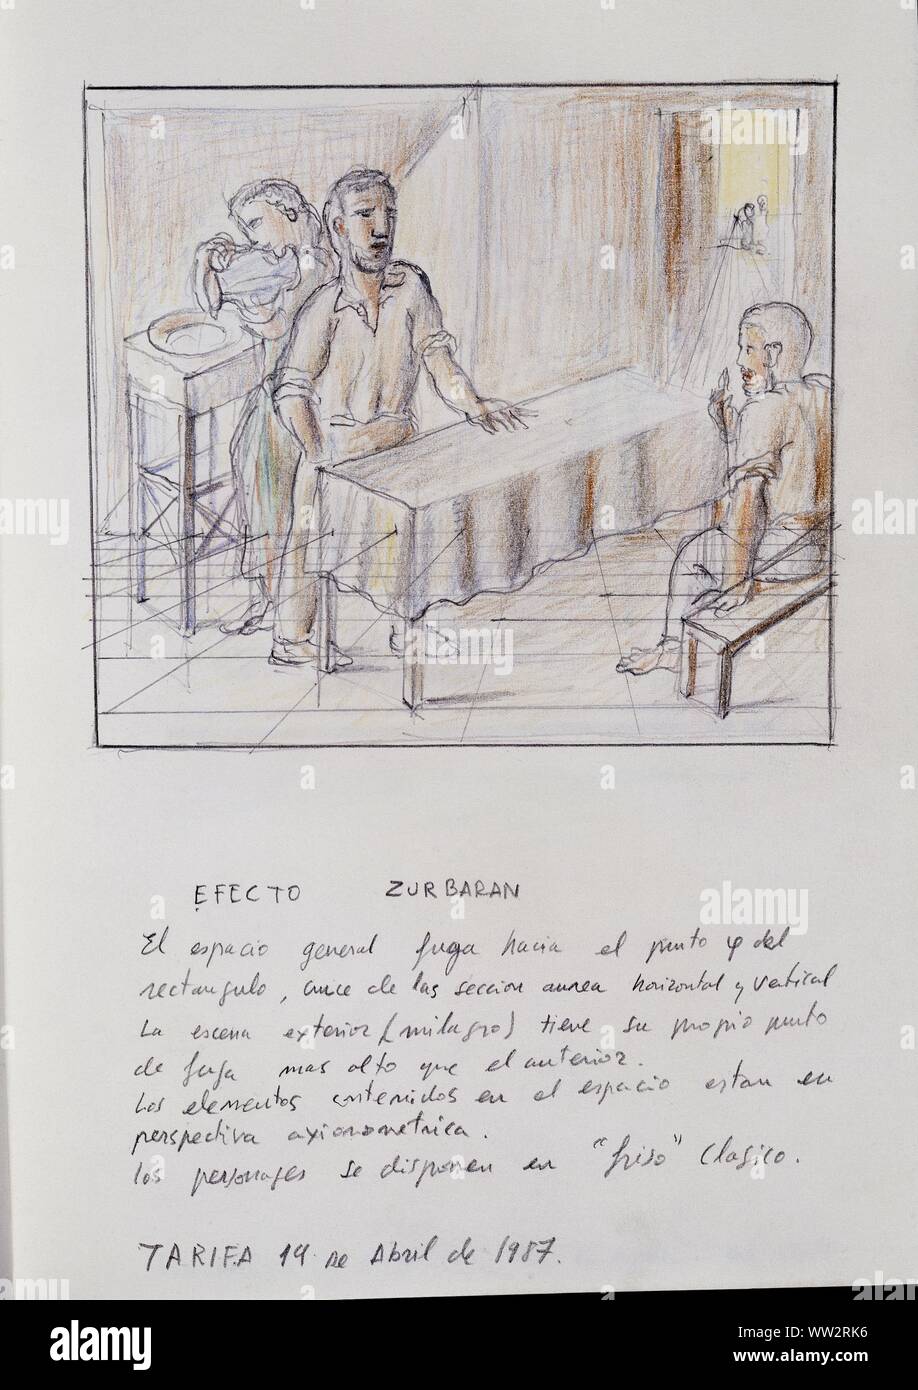 EFECTO ZURBARAN
El espacio general fuga hacia el punto φ del
rectangulo, cruce de las seccion aurea horizontal y vertical
La escena exterior (milagro) tiene su propio punto
de fuga mas alto que el anterior.
Los elementos contenidos en el espacio estan en
perspectiva axionometrica.
los personages se disponen en "friso" Clasico.
TARIFA 19 de Abril de 1987.
alamy
alamy
alamy
alamy
alamy
alamy
Image ID: WW2RK6
www.alamy.com